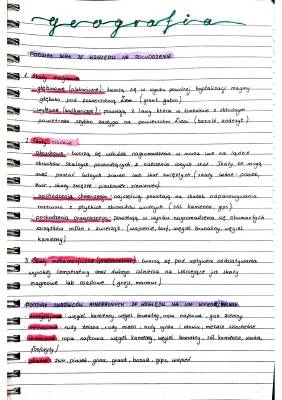 geografia
PODZIAŁ SKAŁ ZE WZGLĘDU NA POCHODZENIE
1. Skały magmowe
głębinowe (plutoniczne) tworzą się w wyniku powolnej krystalizacji magmy
głęboko pod powierzchnią Ziemi (granit, gabro)
wylewne (wulkaniczne) powstają z lawy, która w kontakcie z chłodnym
powietrzem szybko zastyga na powierzchni Ziemi (bazalt, andezyt)
2. Skały osadowe
okruchowe tworzą się wskutek nagromadzenia w morzu lub na lądzie
okruchów skalnych pochodzących z niszczenia innych skał. Skały te mogą
mieć postać luźnych ziaren lub skał zwięzłych (skały luźne: piasek,
żwir, skały zwięzłe: piaskowiec, zlepieniec)
pochodzenia chemicznego najczęściej powstają na skutek odparowywania
roztworów z płytkich zbiorników wodnych (sól kamienna, gips)
pochodzenia organicznego powstają w wyniku nagromadzenia się obumarłych
szczątków roślin i zwierząt (wapienie, torf, węgiel brunatny, węgiel
kamienny)
3. Skały metamorficzne (przeobrażone) tworzą się pod wpływem oddziaływania
wysokiej temperatury oraz dużego ciśnienia na istniejące już skały
magmowe lub osadowe (gnejs, marmur)
PODZIAŁ SUROWCÓW MINERALNYCH ZE WZGLĘDU NA ICH WYKORZYSTANIE
energetyczne węgiel kamienny, węgiel brunatny, ropa naftowa, gaz ziemny
rudy żelaza, rudy miedzi, rudy cynku i ołowiu, metale szlachetne
chemiczne ropa naftowa, węgiel kamienny, węgiel brunatny, sól kamienna, siarka,
fosforyty
skalne żwir, piasek, glina, granit, bazalt, gips, wapień